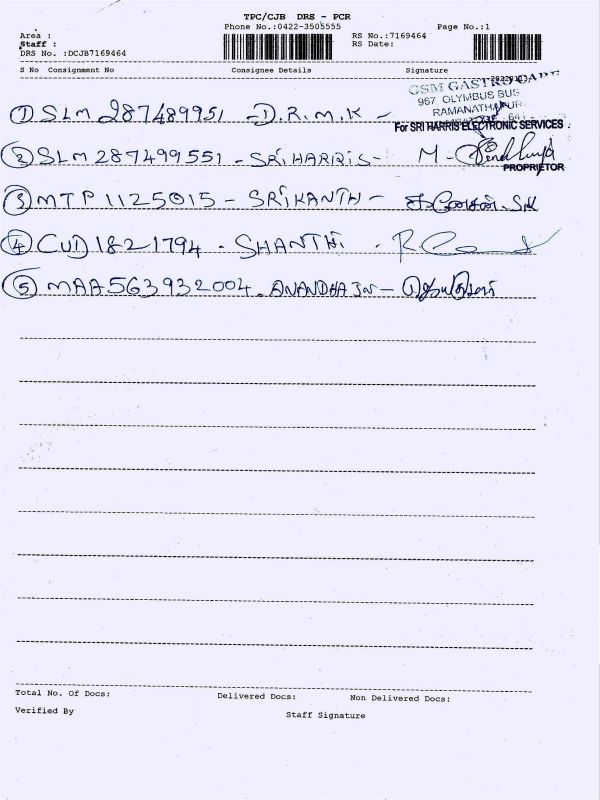 TPC/CJB DRS - PCR
Phone No.:0422-3505555 Page No.:1
Area : RS No.:7169464
Staff : RS Date:
DRS No. :DCJB7169464
S No Consignment No Consignee Details Signature
GSM GASTRO
967 OLYMBUS BUS
RAMANATHAPUR
① SLM 287489951 - D.R.M.K -
For SRI HARRIS ELECTRONIC SERVICES
② SLM 287499551 - SRI HARRIS - M -
PROPRIETOR
③ MTP 1125015 - SRIKANTH -
④ CUD 1821794 - SHANTHI -
⑤ MAA 563932004 - ANANDHA JN -
Total No. Of Docs: Delivered Docs: Non Delivered Docs:
Verified By Staff Signature